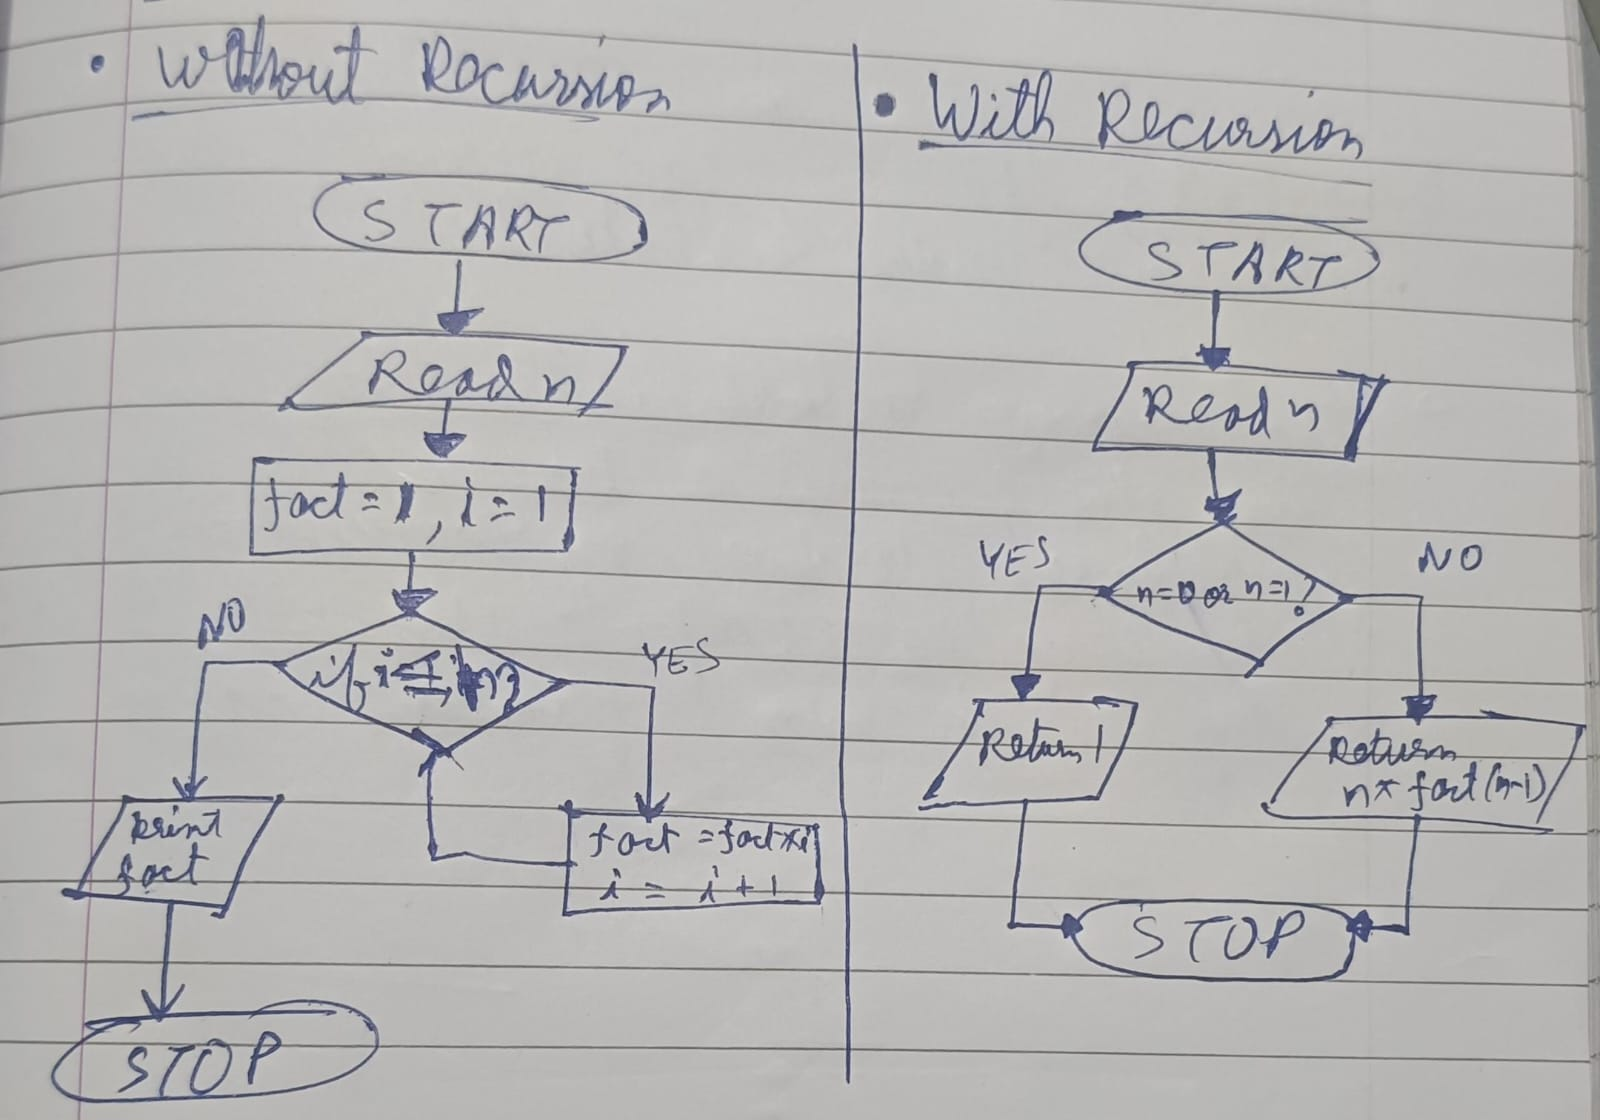 • Without Recursion
START
Read n
fact = 1, i = 1
NO
YES
print
fact
fact = fact*i
i = i + 1
STOP
• With Recursion
START
Read n
YES
n=0 or n=1?
NO
Return 1
Return
n* fact (n-1)
STOP